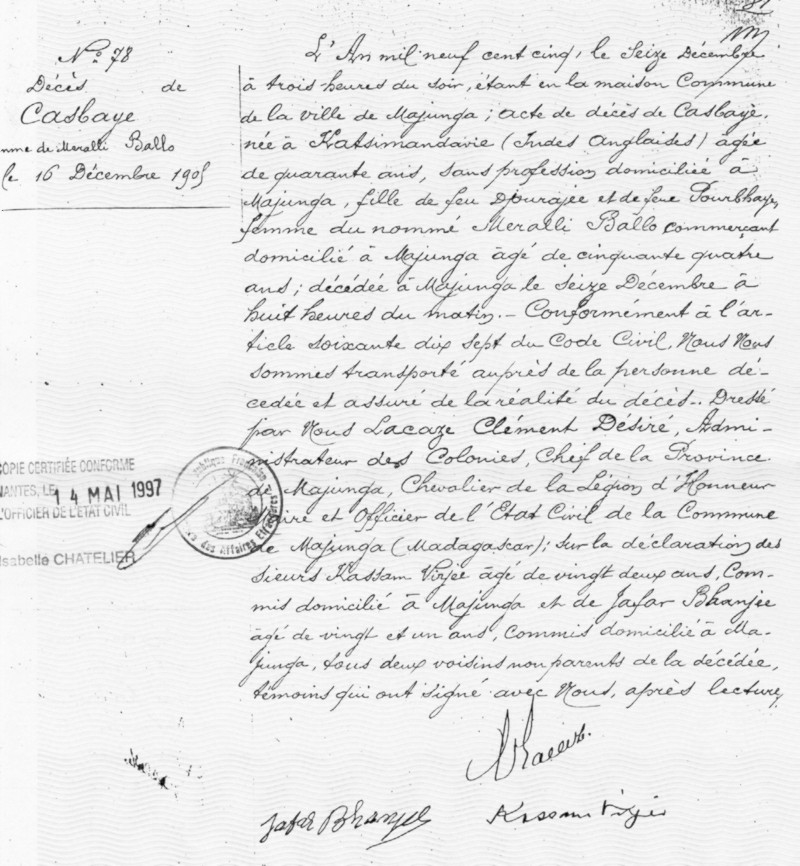 N° 78
Décès de
Casbaye
mme de Meralli Ballo
le 16 Décembre 1905
L'An mil neuf cent cinq, le seize Décembre
à trois heures du soir, étant en la maison Commune
de la ville de Majunga; acte de décès de Casbaye,
née à Katsimandavie (Indes Anglaises) âgée
de quarante ans, sans profession domiciliée à
Majunga, fille de feu Dourajee et de feue Pourbhaye,
femme du nommé Meralli Ballo, commerçant
domicilié à Majunga âgé de cinquante quatre
ans; décédée à Majunga le seize Décembre à
huit heures du matin. – Conformément à l'ar-
ticle soixante dix sept du Code Civil, Nous Nous
sommes transporté auprès de la personne dé-
cedée et assuré de la réalité du décès. – Dressé
par Nous Lacaze Clément Désiré, Admi-
nistrateur des Colonies, Chef de la Province
de Majunga, Chevalier de la Légion d'Honneur
Maire et Officier de l'Etat Civil de la Commune
de Majunga (Madagascar); sur la déclaration des
sieurs Kassam Virjee âgé de vingt deux ans, Com-
mis domicilié à Majunga et de Jafar Bhanjee
âgé de vingt et un ans, Commis domicilié à Ma-
junga, tous deux voisins non parents de la décédée,
témoins qui ont signé avec Nous, après lecture,
COPIE CERTIFIÉE CONFORME
NANTES, LE 14 MAI 1997
L'OFFICIER DE L'ETAT CIVIL
Isabelle CHATELIER
République Française
des Affaires Etrangères
Jafar Bhanjee
Kassam Virjee